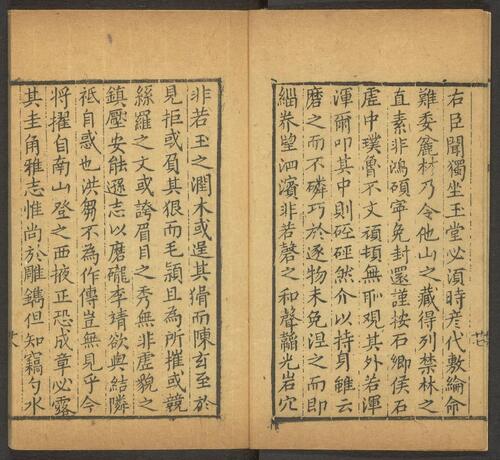 右臣聞獨坐玉堂必須時彦代敷綸命
難委麄材乃令他山之藏得列禁林之
直素非鴻碩寜免封還謹按石鄉侯石
虚中璞魯不文頑頓無耻覌其外若渾
渾爾叩其中則硜硜然介以持身雖云
磨之而不磷巧於逐物未免湼之而即
緇泰望泗濱非若磬之和聲韞光岩穴
非若玉之潤木或逞其猾而陳玄至於
見拒或負其狠而毛頴且為所摧或競
絲羅之文或誇眉目之秀無非虚貌之
鎮壓安能遜志以磨礲李靖欲與結隣
祗自惑也洪芻不為作傳豈無見乎今
將擢自南山登之西掖正恐成章必露
其圭角雅志惟尚於雕鐫但知竊勺水